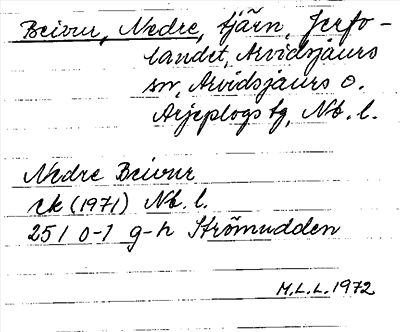 Beivur, Nedre, tjärn, Jerfo-
landet, Arvidsjaurs
sn, Arvidsjaurs o.
Arjeplogs tg, Nb. l.
Nedre Beivur
ek (1971) Nb. l.
25 I 0-1 g-h Strömudden
M.L.L. 1972